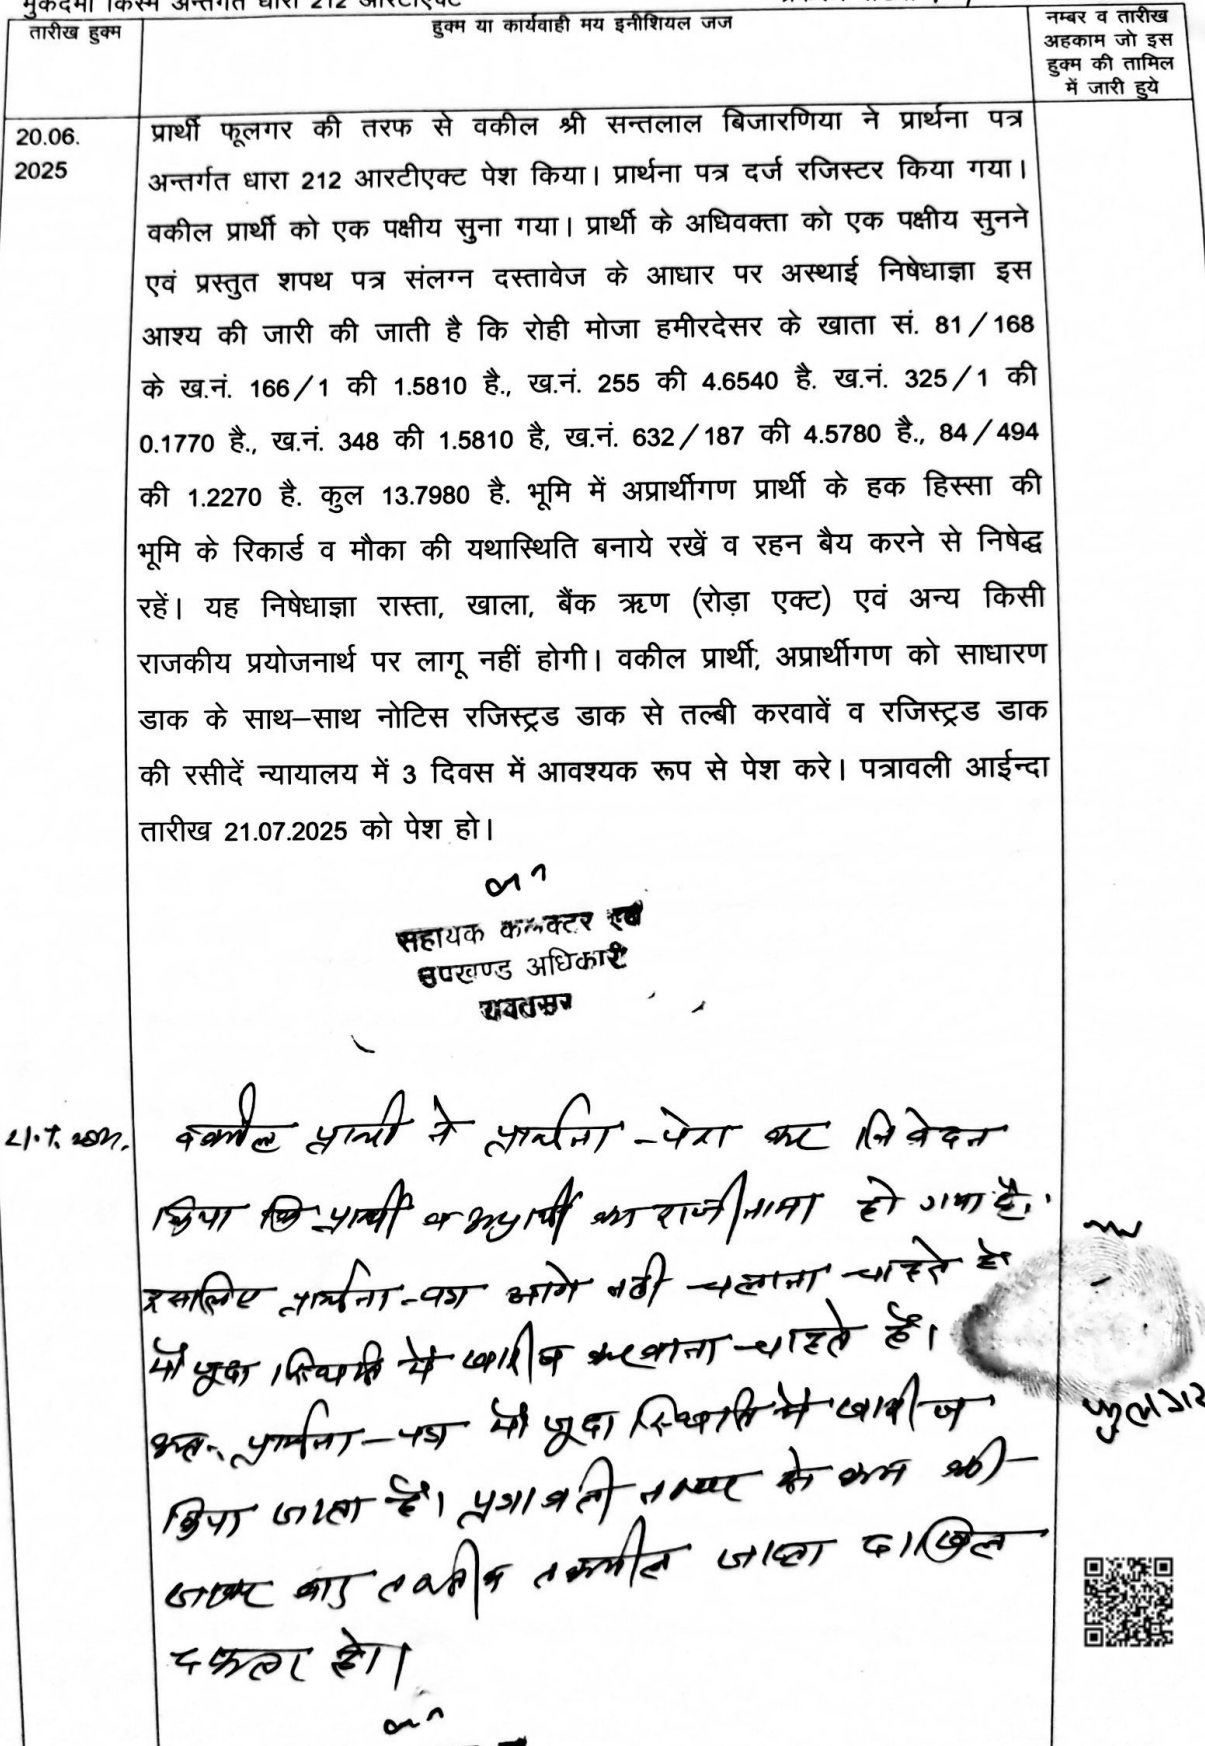 मुकदमा किस्म अन्तर्गत धारा 212 आरटीएक्ट
तारीख हुक्म
हुक्म या कार्यवाही मय इनीशियल जज
नम्बर व तारीख
अहकाम जो इस
हुक्म की तामिल
में जारी हुये
20.06.
2025
प्रार्थी फूलगर की तरफ से वकील श्री सन्तलाल बिजारणिया ने प्रार्थना पत्र
अन्तर्गत धारा 212 आरटीएक्ट पेश किया। प्रार्थना पत्र दर्ज रजिस्टर किया गया।
वकील प्रार्थी को एक पक्षीय सुना गया। प्रार्थी के अधिवक्ता को एक पक्षीय सुनने
एवं प्रस्तुत शपथ पत्र संलग्न दस्तावेज के आधार पर अस्थाई निषेधाज्ञा इस
आश्य की जारी की जाती है कि रोही मोजा हमीरदेसर के खाता सं. 81/168
के ख.नं. 166/1 की 1.5810 है., ख.नं. 255 की 4.6540 है. ख.नं. 325/1 की
0.1770 है., ख.नं. 348 की 1.5810 है, ख.नं. 632/187 की 4.5780 है., 84/494
की 1.2270 है. कुल 13.7980 है. भूमि में अप्रार्थीगण प्रार्थी के हक हिस्सा की
भूमि के रिकार्ड व मौका की यथास्थिति बनाये रखें व रहन बैय करने से निषेद्ध
रहें। यह निषेधाज्ञा रास्ता, खाला, बैंक ऋण (रोड़ा एक्ट) एवं अन्य किसी
राजकीय प्रयोजनार्थ पर लागू नहीं होगी। वकील प्रार्थी, अप्रार्थीगण को साधारण
डाक के साथ–साथ नोटिस रजिस्ट्रड डाक से तल्बी करवावें व रजिस्ट्रड डाक
की रसीदें न्यायालय में 3 दिवस में आवश्यक रूप से पेश करे। पत्रावली आईन्दा
तारीख 21.07.2025 को पेश हो।
सहायक कलक्टर एवं
उपखण्ड अधिकारी
वकील प्रार्थी ने प्रार्थना -पेश कर निवेदन
किया कि प्रार्थी व अप्रार्थी का राजीनामा हो गया है।
इसलिए प्रार्थना-पत्र आगे नही चलाना चाहते है
मौजूदा स्थिति मे खारीज करवाना चाहते हैं।
अतः प्रार्थना-पत्र मौजूदा स्थिति मे खारीज
किया जाता है। पत्रावली नम्बर से कम की
जाकर बाद तकमील दाखिल
दफ्तर हो।
फुलगर